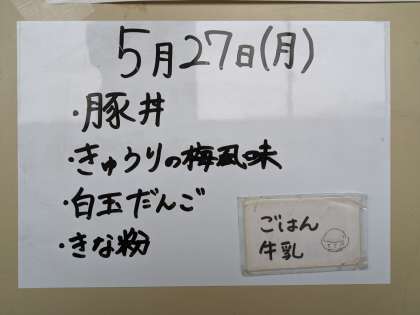 5月27日(月)
・豚丼
・きゅうりの梅風味
・白玉だんご
・きな粉
ごはん
牛乳